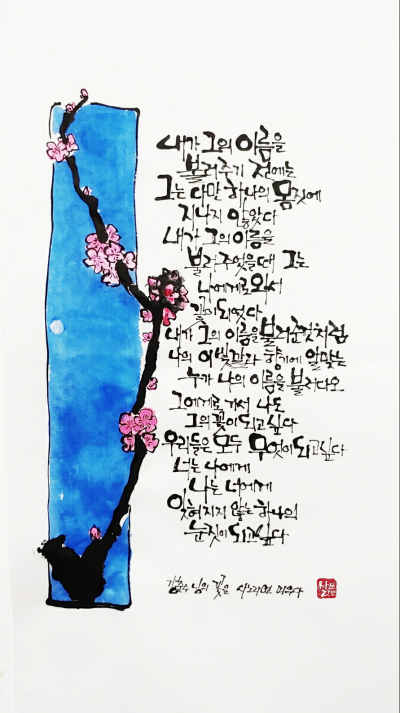 내가 그의 이름을
불러주기 전에는
그는 다만 하나의 몸짓에
지나지 않았다
내가 그의 이름을
불러주었을때 그는
나에게로 와서
꽃이 되었다
내가 그의 이름을 불러준것처럼
나의 이 빛깔과 향기에 알맞는
누가 나의 이름을 불러다오
그에게로 가서 나도
그의 꽃이 되고 싶다
우리들은 모두 무엇이 되고 싶다
너는 나에게
나는 너에게
잊혀지지 않는 하나의
눈짓이 되고 싶다
김춘수 님의 꽃을